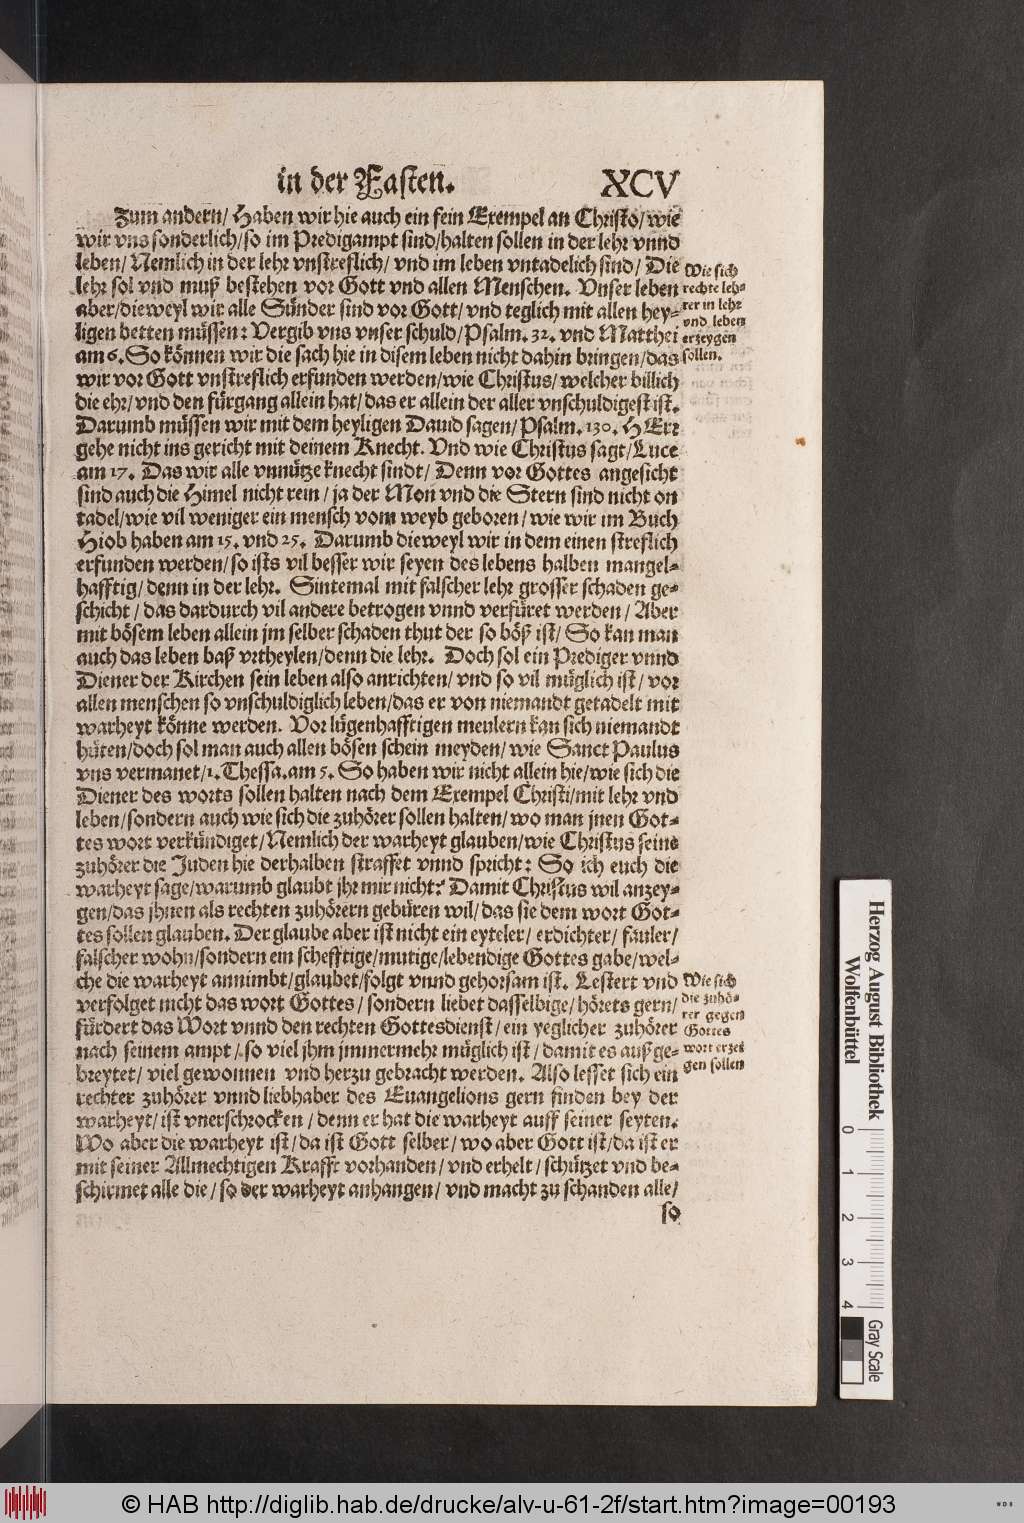 in der Fasten. XCV
Zum andern/ Haben wir hie auch ein fein Exempel an Christo/ wie
wir vns sonderlich/ so im Predigampt sind/ halten sollen in der lehr vnnd
leben/ Nemlich in der lehr vnstreflich/ vnd im leben vntadelich sind/ Die
lehr sol vnd muß bestehen vor Gott vnd allen Menschen. Vnser leben
aber/ dieweyl wir alle Sünder sind vor Gott/ vnd teglich mit allen hey-
ligen betten müssen: Vergib vns vnser schuld/ Psalm. 32. vnd Matthei
am 6. So können wir die sach hie in disem leben nicht dahin bringen/ das
wir vor Gott vnstreflich erfunden werden/ wie Christus/ welcher billich
die ehr/ vnd den fürgang allein hat/ das er allein der aller vnschuldigest ist.
Darumb müssen wir mit dem heyligen Dauid sagen/ Psalm. 130. HErr
gehe nicht ins gericht mit deinem Knecht. Vnd wie Christus sagt/ Luce
am 17. Das wir alle vnnütze knecht sindt/ Denn vor Gottes angesicht
sind auch die Himel nicht rein/ ja der Mon vnd die Stern sind nicht on
tadel/ wie vil weniger ein mensch vom weyb geboren/ wie wir im Buch
Hiob haben am 15. vnd 25. Darumb dieweyl wir in dem einen streflich
erfunden werden/ so ists vil besser wir seyen des lebens halben mangel-
hafftig/ denn in der lehr. Sintemal mit falscher lehr grosser schaden ge-
schicht/ das dardurch vil andere betrogen vnnd verfüret werden/ Aber
mit bösem leben allein jm selber schaden thut der so böß ist/ So kan man
auch das leben baß vrtheylen/ denn die lehr. Doch sol ein Prediger vnnd
Diener der Kirchen sein leben also anrichten/ vnd so vil müglich ist/ vor
allen menschen so vnschuldiglich leben/ das er von niemandt getadelt mit
warheyt könne werden. Vor lügenhafftigen meulern kan sich niemandt
hüten/ doch sol man auch allen bösen schein meyden/ wie Sanct Paulus
vns vermanet/ 1. Thessa. am 5. So haben wir nicht allein hie/ wie sich die
Diener des worts sollen halten nach dem Exempel Christi/ mit lehr vnd
leben/ sondern auch wie sich die zuhörer sollen halten/ wo man jnen Got-
tes wort verkündiget/ Nemlich der warheyt glauben/ wie Christus seine
zuhörer die Juden hie derhalben straffet vnnd spricht: So ich euch die
warheyt sage/ warumb glaubt jhr mir nicht? Damit Christus wil anzey-
gen/ das jhnen als rechten zuhörern gebüren wil/ das sie dem wort Got-
tes sollen glauben. Der glaube aber ist nicht ein eyteler/ erdichter/ fauler/
falscher wohn/ sondern ein schefftige/ mutige/ lebendige Gottes gabe/ wel-
che die warheyt annimbt/ glaubet/ folgt vnnd gehorsam ist. Lestert vnd
verfolget nicht das wort Gottes/ sondern liebet dasselbige/ hörets gern/
fürdert das Wort vnnd den rechten Gottesdienst/ ein yeglicher zuhörer
nach seinem ampt/ so viel jhm jmmermehr müglich ist/ damit es außge-
breytet/ viel gewonnen vnd herzu gebracht werden. Also lesset sich ein
rechter zuhörer vnnd liebhaber des Euangelions gern finden bey der
warheyt/ ist vnerschrocken/ denn er hat die warheyt auff seiner seyten.
Wo aber die warheyt ist/ da ist Gott selber/ wo aber Gott ist/ da ist er
mit seiner Allmechtigen Krafft vorhanden/ vnd erhelt/ schützet vnd be-
schirmet alle die/ so der warheyt anhangen/ vnd macht zu schanden alle/
so
Wie sich
rechte leh-
rer in lehr
vnd leben
erzeygen
sollen.
Wie sich
die zuhö-
rer gegen
Gottes
wort erzei
gen sollen
Herzog August Bibliothek
Wolfenbüttel
0 1 2 3 4
Gray Scale
© HAB http://diglib.hab.de/drucke/alv-u-61-2f/start.htm?image=00193